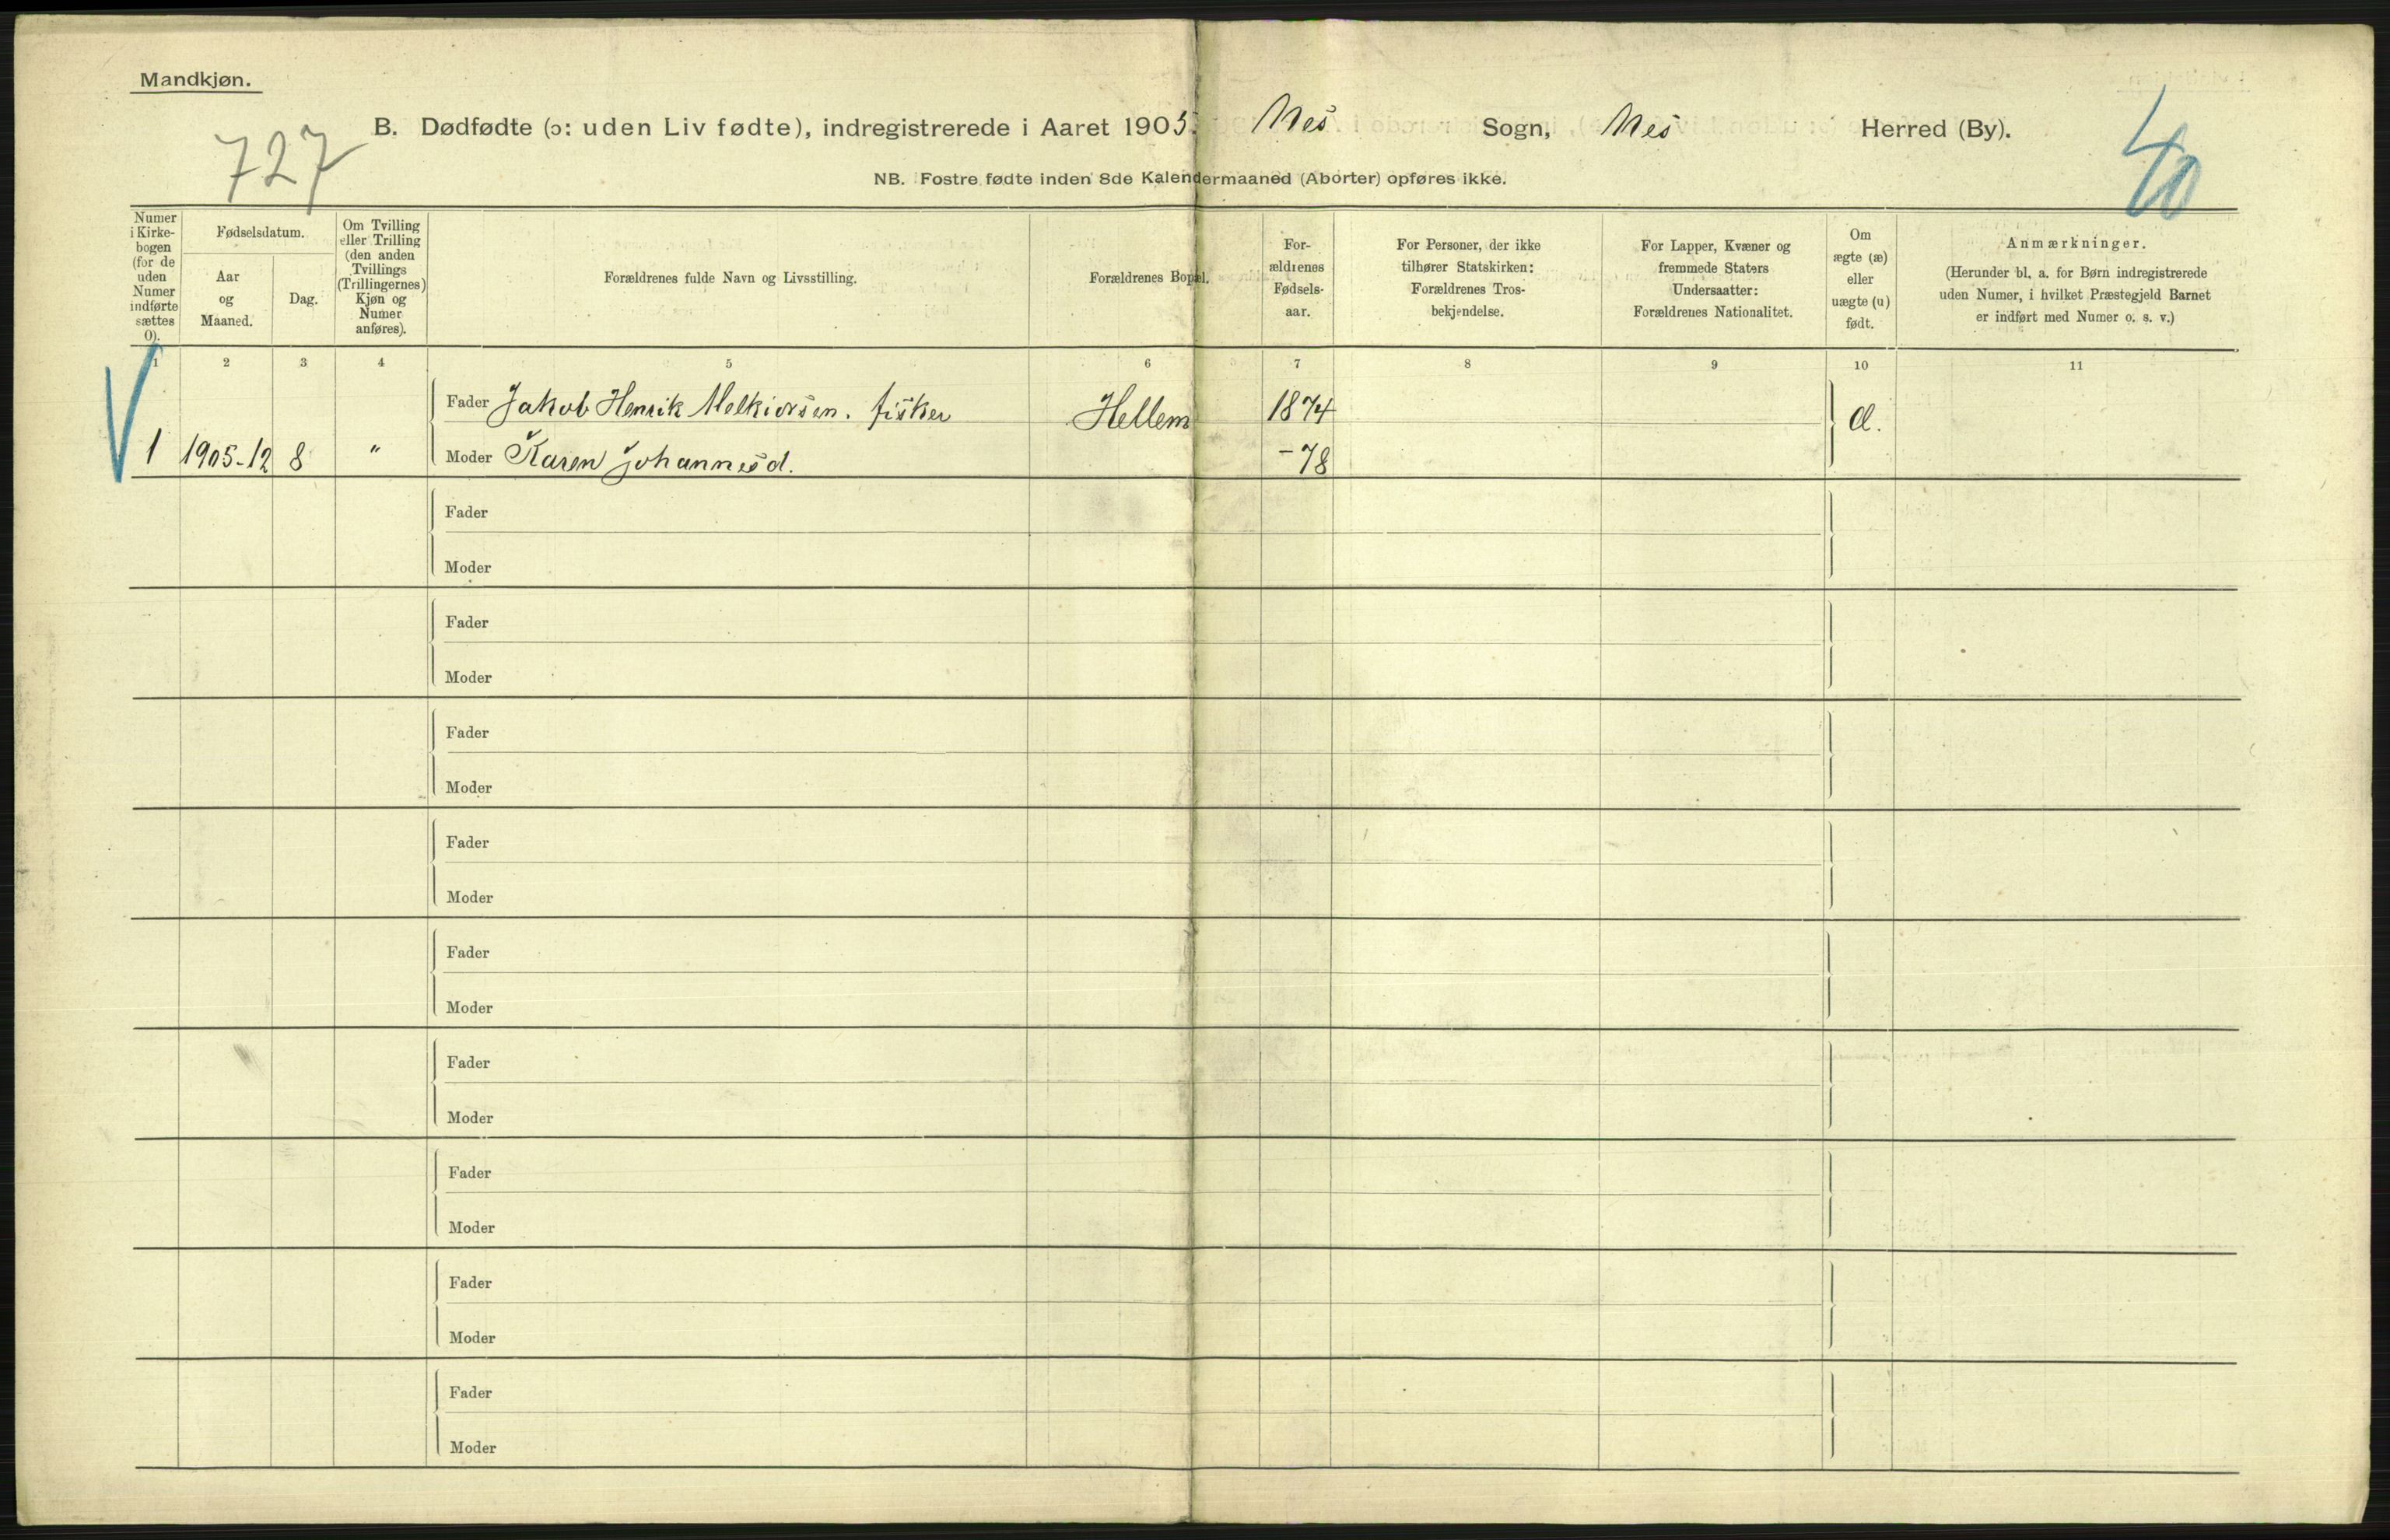 Mandkjøn.
727
B. Dødfødte (ɔ: uden Liv fødte), indregistrerede i Aaret 1905. Nes Sogn, Nes Herred (By).
40
NB. Fostre fødte inden 8de Kalendermaaned (Aborter) opføres ikke.
Numer i Kirke-bogen (for de uden Numer indførte sættes 0).
Fødselsdatum.
Aar og Maaned.
Dag.
Om Tvilling eller Trilling (den anden Tvillings (Trillingernes) Kjøn og Numer anføres).
Forældrenes fulde Navn og Livsstilling.
Forældrenes Bopæl.
For-ældrenes Fødsels-aar.
For Personer, der ikke tilhører Statskirken: Forældrenes Tros-bekjendelse.
For Lapper, Kvæner og fremmede Staters Undersaatter: Forældrenes Nationalitet.
Om ægte (æ) eller uægte (u) født.
Anmærkninger.
(Herunder bl. a. for Børn indregistrerede uden Numer, i hvilket Præstegjeld Barnet er indført med Numer o. s. v.)
1 2 3 4 5 6 7 8 9 10 11
Fader Jakob Henrik Melkiorsen. fisker Hellem 1874 æ.
1 1905-12 8 " Moder Karen Johannesd. -78
Fader
Moder
Fader
Moder
Fader
Moder
Fader
Moder
Fader
Moder
Fader
Moder
Fader
Moder
Fader
Moder
Fader
Moder